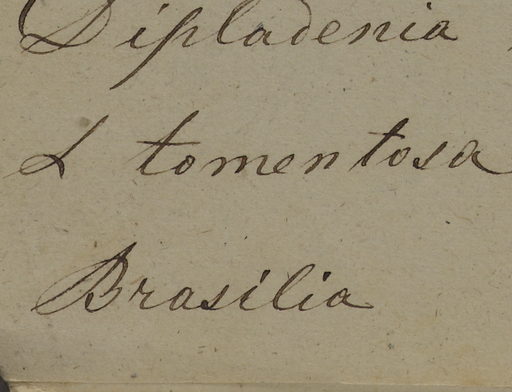 Dipladenia
α tomentosa
Brasilia